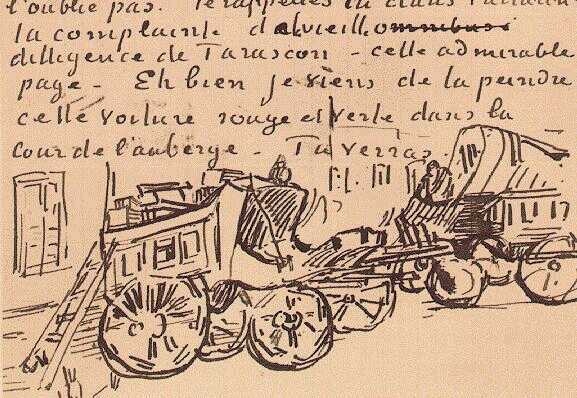 l'oublie pas. Te rappelles tu dans Tartarin
la complainte de la vieille
dilligence de Tarascon - cette admirable
page - Eh bien je viens de la peindre
cette voiture rouge et verte dans la
cour de l'auberge - Tu verras.